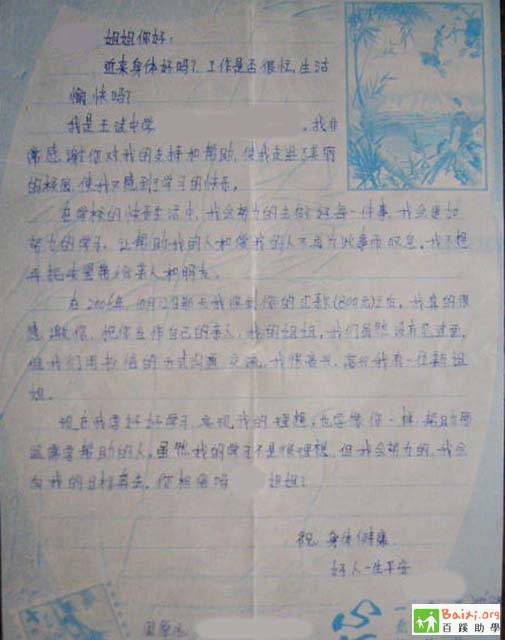 姐姐你好:
近来身体好吗?工作是否很忙,生活
愉快吗?
我是王试中学 。我非
常感谢你对我的支持和帮助,使我走进了美丽
的校园,使我又感到了学习的快乐。
在学校的快乐生活中,我会努力的去做好每一件事,我会更加
努力的学习,让帮助我的人和像我的人不再为此事而叹息。我不想
再把失望带给亲人和朋友。
在2006年,10月 那天我收到你的汇款(800元)之后,我真的很
感谢你,把你当作自己的亲人,我的姐姐,我们虽然没有见过面,
但我们用书信的方式沟通 交流,我很高兴,高兴我有一位新姐
姐。
现在我要好好学习,实现我的理想,也学像你一样 帮助那
些需要帮助的人。虽然我的学习不是很理想,但我会努力的,我会
向我的目标奔去,你相信吗 姐姐!
祝 身体健康
好人一生平安
Baixi.org
百蹊助學